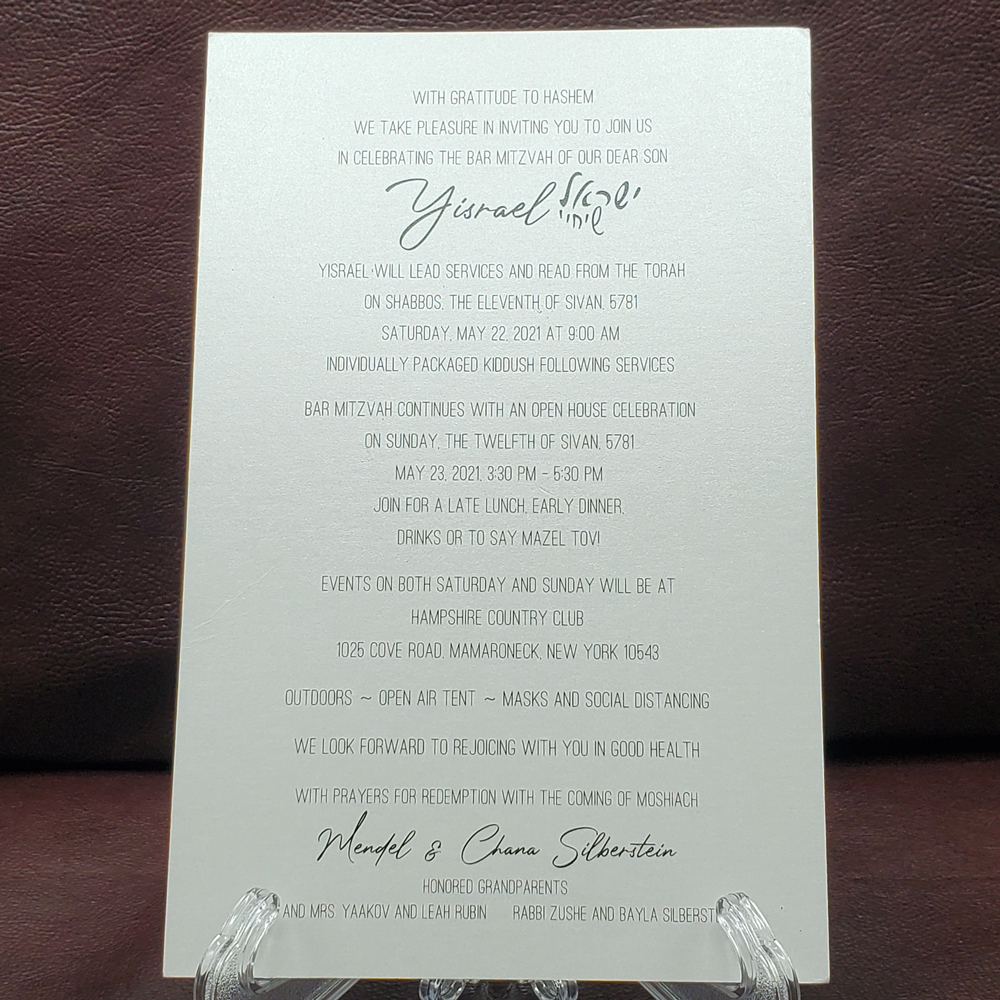 WITH GRATITUDE TO HASHEM
WE TAKE PLEASURE IN INVITING YOU TO JOIN US
IN CELEBRATING THE BAR MITZVAH OF OUR DEAR SON
Yisrael ישראל
שיחיי
YISRAEL WILL LEAD SERVICES AND READ FROM THE TORAH
ON SHABBOS, THE ELEVENTH OF SIVAN, 5781
SATURDAY, MAY 22, 2021 AT 9:00 AM
INDIVIDUALLY PACKAGED KIDDUSH FOLLOWING SERVICES
BAR MITZVAH CONTINUES WITH AN OPEN HOUSE CELEBRATION
ON SUNDAY, THE TWELFTH OF SIVAN, 5781
MAY 23, 2021, 3:30 PM - 5:30 PM
JOIN FOR A LATE LUNCH, EARLY DINNER,
DRINKS OR TO SAY MAZEL TOV!
EVENTS ON BOTH SATURDAY AND SUNDAY WILL BE AT
HAMPSHIRE COUNTRY CLUB
1025 COVE ROAD, MAMARONECK, NEW YORK 10543
OUTDOORS ~ OPEN AIR TENT ~ MASKS AND SOCIAL DISTANCING
WE LOOK FORWARD TO REJOICING WITH YOU IN GOOD HEALTH
WITH PRAYERS FOR REDEMPTION WITH THE COMING OF MOSHIACH
Mendel & Chana Silberstein
HONORED GRANDPARENTS
AND MRS. YAAKOV AND LEAH RUBIN RABBI ZUSHE AND BAYLA